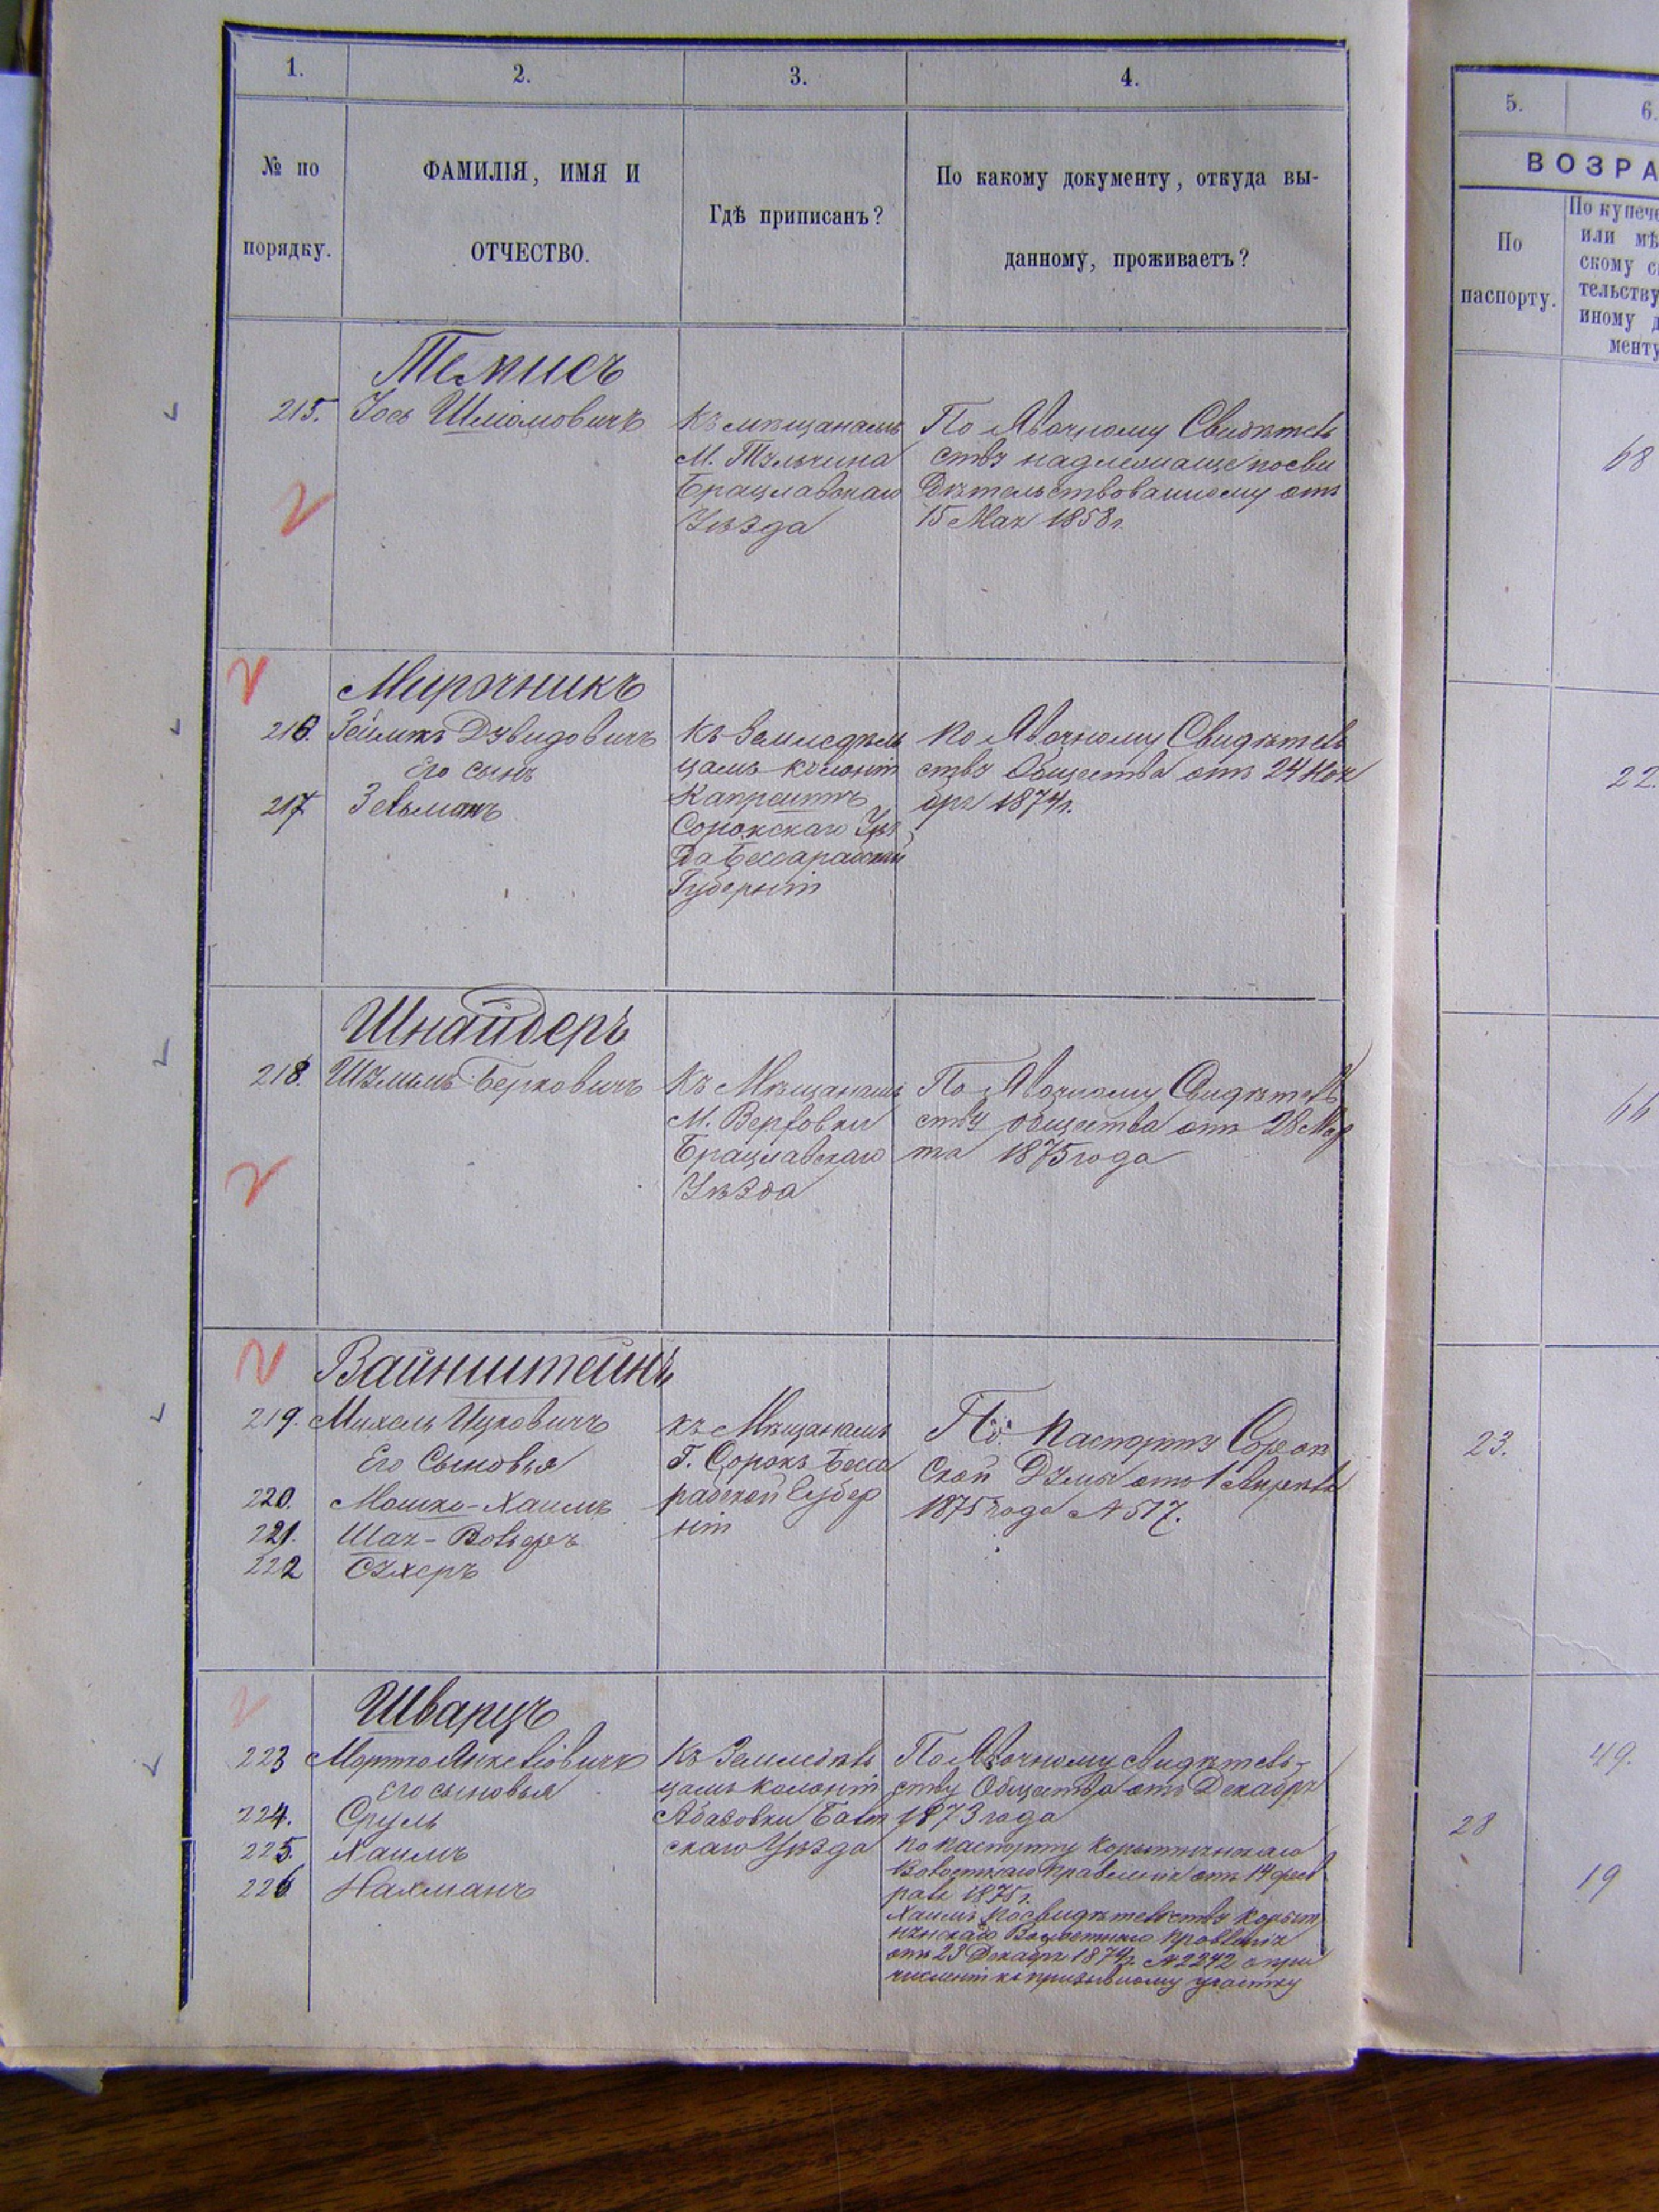 1.
2.
3.
4.
№ по
порядку.
ФАМИЛІЯ, ИМЯ И
ОТЧЕСТВО.
Гдѣ приписанъ?
По какому документу, откуда вы-
данному, проживаетъ?
Темисъ
215.
Іось Шліомовичъ
Къ мѣщанамъ
М. Тульчина
Брацлавскаго
Уѣзда
По Явочному Свидѣтель
ству надлежаще посви
дѣтельствованному отъ
15 Мая 1858 г.
Мирочникъ
216.
Зейликъ Дувидовичъ
Его сынъ
217
Зельманъ
Къ Земледѣль
цамъ колоніи
Капрештъ
Сорокскаго Уѣз
да Бессарабской
Губерніи
По Явочному Свидѣтель
ству Общества отъ 24 Ноя
бря 1874 г.
Шнайдеръ
218.
Шулимъ Берковичъ
Къ Мѣщанамъ
М. Верховки
Брацлавскаго
Уѣзда
По Явочному Свидѣтель
ству общества отъ 28 Мар
та 1875 года
Вайнштейнъ
219.
Михель Ицковичъ
Его Сыновья
220.
Мошко-Хаимъ
221.
Шая-Вольфъ
222
Сухеръ
къ Мѣщанамъ
Г. Сорокъ Бесса
рабской Губер
ніи
По Паспорту Сорок
ской Думы отъ 1 Апрѣля
1875 года № 517.
Шварцъ
223
Мортко Анкеліовичъ
Его сыновья
224.
Сруль
225.
Хаимъ
226
Нахманъ
Къ Земледѣль
цамъ колоніи
Абазовки Балт
скаго Уѣзда
По Явочному свидѣтель-
ству Общества отъ Декабря
1873 года
по паспорту Корытнянскаго
Волостнаго Правленія отъ 14 фев
раля 1875 г.
Хаимъ по свидѣтельству Корыт
нянскаго Волостнаго Правленія
отъ 23 Декабря 1874 г. № 2242 о при
численіи къ призывному участку
5.
6.
ВОЗРА
По
паспорту.
По купече
или мѣ
скому с
тельству
иному д
менту
68
22.
66
23.
49.
28
19